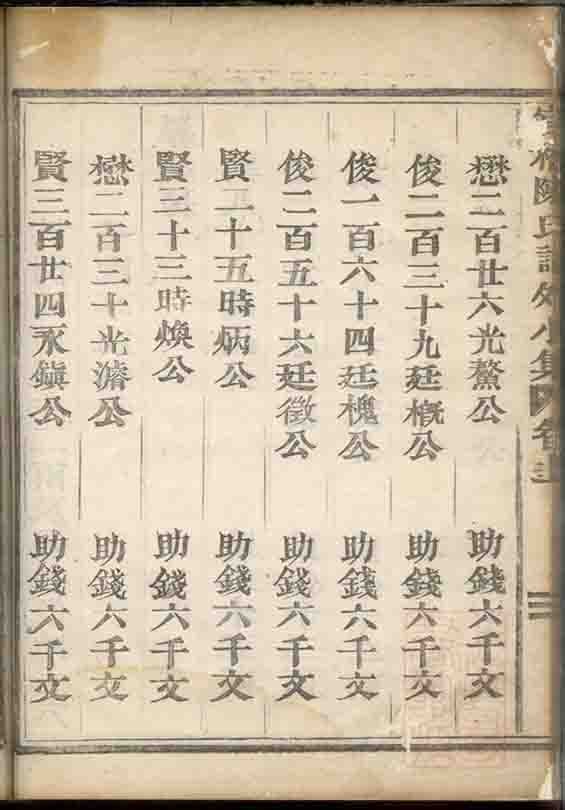 陳氏
懋二百廿六光鰲公 助錢六千文
俊二百三十九廷概公 助錢六千文
俊一百六十四廷槐公 助錢六千文
俊二百五十六廷徵公 助錢六千文
賢二十五時炳公 助錢六千文
賢三十三時煥公 助錢六千文
懋二百三十光濱公 助錢六千文
賢三百廿四永鎮公 助錢六千文